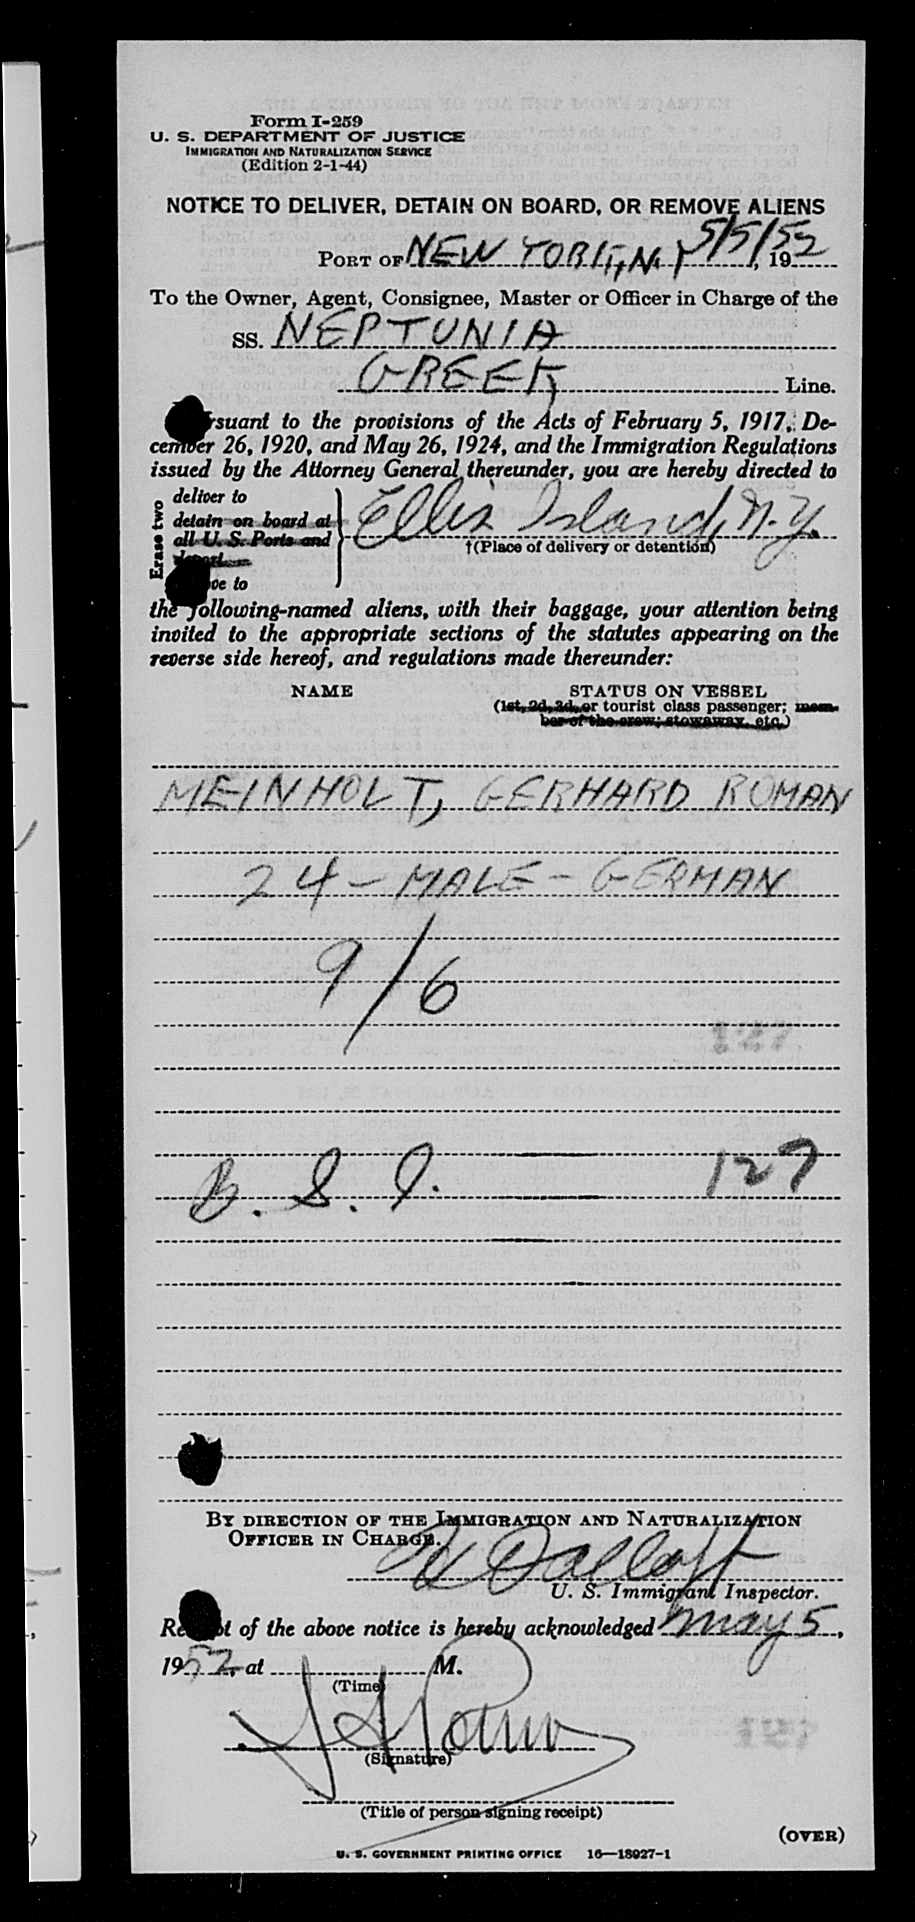 Form I-259
U. S. DEPARTMENT OF JUSTICE
IMMIGRATION AND NATURALIZATION SERVICE
(Edition 2-1-44)
NOTICE TO DELIVER, DETAIN ON BOARD, OR REMOVE ALIENS
PORT OF NEW YORK, N.Y 5/5/52, 1952
To the Owner, Agent, Consignee, Master or Officer in Charge of the
SS. NEPTUNIA
GREEK Line.
rsuant to the provisions of the Acts of February 5, 1917, De-
cember 26, 1920, and May 26, 1924, and the Immigration Regulations
issued by the Attorney General thereunder, you are hereby directed to
Erase two
deliver to
detain on board at
all U. S. Ports and
deport
ove to
Ellis Island, N.Y.
†(Place of delivery or detention)
the following-named aliens, with their baggage, your attention being
invited to the appropriate sections of the statutes appearing on the
reverse side hereof, and regulations made thereunder:
NAME STATUS ON VESSEL
(1st, 2d, 3d, or tourist class passenger; mem-
ber of the crew; stowaway, etc.)
MEINHOLT, GERHARD ROMAN
24 - MALE - GERMAN
9/6
127
B. S. I. 127
BY DIRECTION OF THE IMMIGRATION AND NATURALIZATION
OFFICER IN CHARGE.
U. S. Immigrant Inspector.
Re t of the above notice is hereby acknowledged May 5,
1952, at M.
(Time)
(Signature)
(Title of person signing receipt)
(OVER)
U. S. GOVERNMENT PRINTING OFFICE 16—18927-1